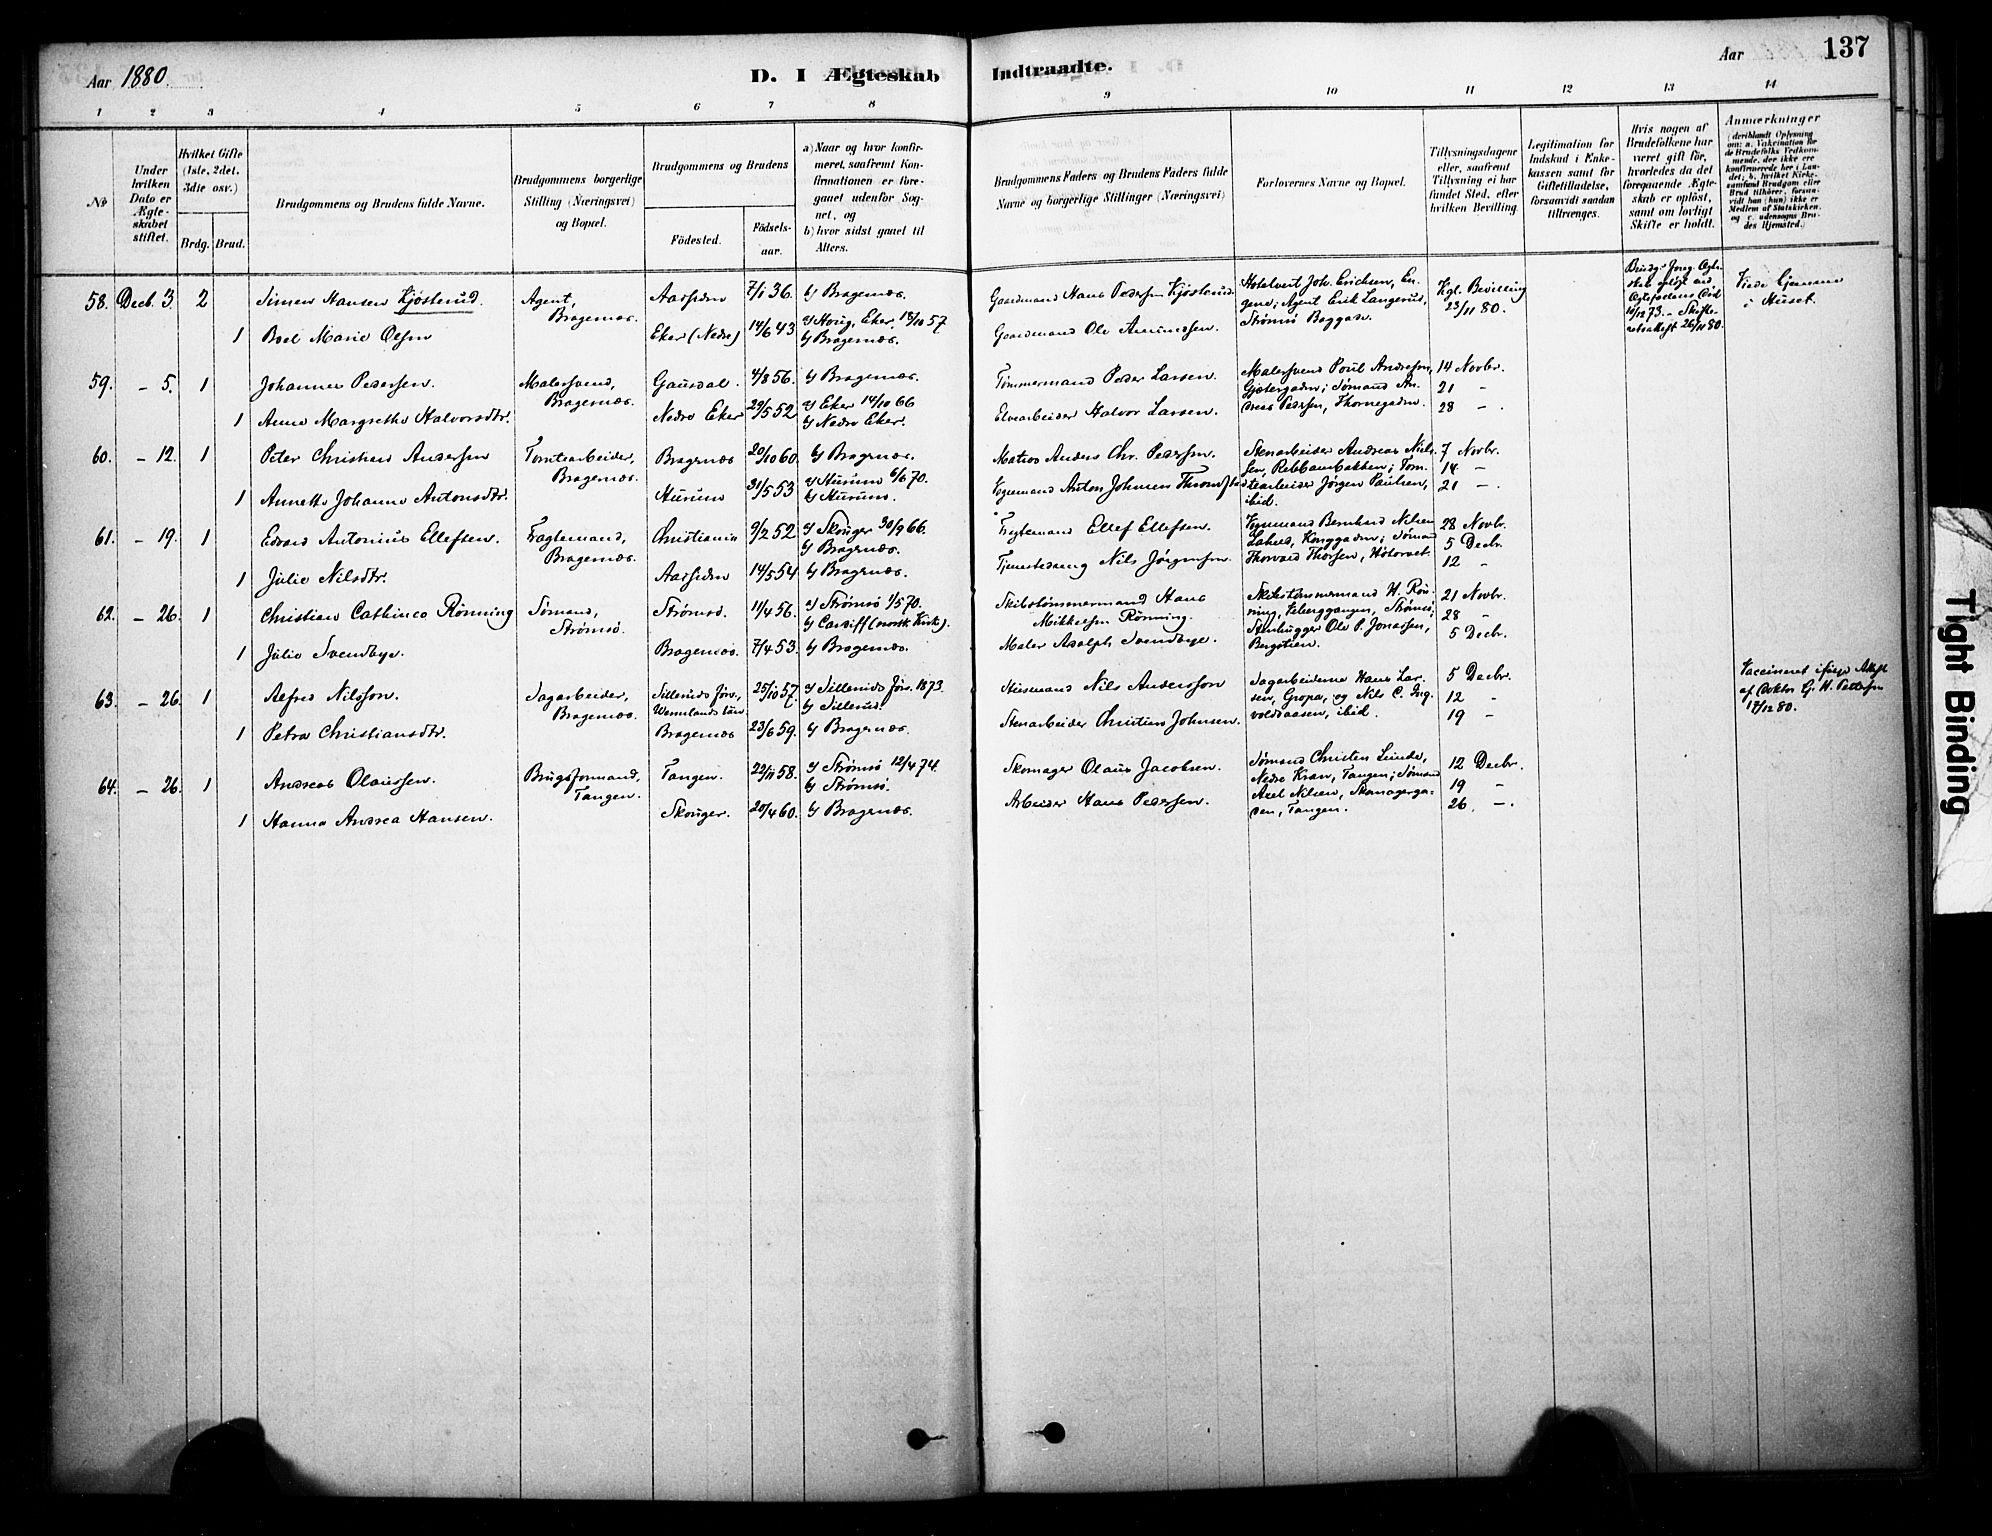 Aar 1880.
D. I Ægteskab Indtraadte.
Aar 137
1 2 3 4 5 6 7 8 9 10 11 12 13 14
No
Under hvilken Dato er Ægteskabet stiftet.
Hvilket Gifte (1ste, 2det, 3die osv.)
Brdg. Brud.
Brudgommens og Brudens fulde Navne.
Brudgommens borgerlige Stilling (Næringsvei) og Bopæl.
Brudgommens og Brudens
Födested.
Födsels-aar.
a) Naar og hvor konfirmeret, saafremt Konfirmationen er foregaaet udenfor Sognet, og
b) hvor sidst gaaet til Alters.
Brudgommens Faders og Brudens Faders fulde Navne og borgerlige Stillinger (Næringsvei)
Forlovernes Navne og Bopæl.
Tillysningsdagene eller, saafremt Tillysning ei har fundet Sted, efter hvilken Bevilling.
Legitimation for Indskud i Enkekassen samt for Giftetilladelse, forsaavidt saadan tiltrænges.
Hvis nogen af Brudefolkene har været gift för, hvorledes da det foregaaende Ægteskab er oplöst, samt om lovligt Skifte er holdt.
Anmærkninger
(deriblandt Oplysning om: a. Vakcination for de Brudefolks Vedkommende, der ikke ere konfirmerede her i Landet; b. hvilket Kirkesamfund Brudgom eller Brud tilhörer, forsaavidt han (hun) ikke er Medlem af Statskirken, og c. udensogns Brudes Hjemsted.)
58. Decb. 3 2 Simen Hansen Kjösterud. Agent, Bragernæs. Aassiden 7/1 36. b) Bragernæs. Gaardmand Hans Pedersen Kjösterud Hotelvert Joh. Erichsen, Engene; Agent Erik Langerud, Strømsö Baggade Kgl. Bevilling 23/11 80. Brudg. foreg. Ægteskab oplöst ved Ægtefællens Död 10/12 73. – Skifteretsattest 26/11 80. Viede Hjemme i Huset.
1 Boel Marie Olsen Eker (Nedre) 14/6 43 a) Houg, Eker, 18/10 57 b) Bragernæs. Gaardmand Ole Amundsen.
59. – 5. 1 Johannes Pedersen. Malersvend, Bragernæs. Gausdal. 4/8 56. b) Bragernæs. Tømmermand Peder Larsen. Malersvend Poul Andersen, Gjetergaden; Sømand Andreas Pedersen, Thornegaden. 14 Novbr. 21 – 28 –.
1 Anne Margrethe Halvorsdtr. Nedre Eker 29/5 52 a) Eker 14/10 66 b) Nedre Eker. Elvearbeider Halvor Larsen.
60. – 12. 1 Peter Christian Andersen Tomtearbeider, Bragernæs. Bragernæs 20/10 60. b) Bragernæs. Matros Anders Chr. Pedersen. Stenarbeider Andreas Nilsen, Rebbanebakken; Tomtearbeider Jörgen Paulsen, ibid. 7 Novbr. 14 – 21 –.
1 Annette Johanne Antonsdtr. Hurum 31/5 53 a) Hurum 6/6 70. b) Hurum. Anton Johnsen
61. – 19. 1 Edvard Antonius Ellefsen. Fragtemand, Bragernæs. Christiania 9/2 52 a) Skouger 30/9 66. b) Bragernæs. Fragtemand Ellef Ellefsen. Bernhard Nilsen Kongegaden; Sømand Thorvald Thorsen, Høtorvet. 28 Novbr. 5 Decbr. 12 –
1 Julie Nilsdtr. Aassiden 14/5 54 b) Bragernæs. Tjenestedreng Nils Jørgensen.
62. – 26. 1 Christian Cathinco Rönning Sømand, Strømsö. Strømsö. 11/4 56. a) Strømsö 1/5 70. b) Cardiff (norsk Kirke). Skibstømmermand Hans Mikkelsen Rönning. Skibstømmermand H. Rönning, Strømsö; Stenhugger Ole P. Jonassen, Bergstien. 21 Novbr. 28 – 5 Decbr.
1 Julie Svendbye. Bragernæs. 7/4 53. b) Bragernæs. Maler Adolph Svendbye.
63. – 26. 1 Alfred Nilsson. Sagarbeider, Bragernæs. Silleruds förs., Wermlands län 25/10 57. a) Silleruds förs. 1873. b) Sillerud. Husmand Nils Andersson Sagarbeiderne Hans Larsen, Gropa, og Nils C. Ingvoldsaasen, ibid. 5 Decbr. 12 – 19 – Vaccineret ifølge Attest af Doktor G. H. Pettersen 17/12 80.
1 Petra Christiansdtr. Bragernæs 23/6 59. b) Bragernæs. Stenarbeider Christian Johnsen.
64. – 26. 1 Andreas Olaussen. Brugsformand, Tangen. Tangen. 22/11 58. a) Strømsö 12/4 74. b) Strømsö. Skomager Olaus Jacobsen. Sømand Christen Lunde, Nedre Kran, Tangen; Sømand Axel Nilsen, Skomagergaden, Tangen. 12 Decbr. 19 – 26. –.
1 Hanna Andrea Hansen. Skouger. 20/4 60. b) Bragernæs. Arbeider Hans Pedersen.
Tight Binding